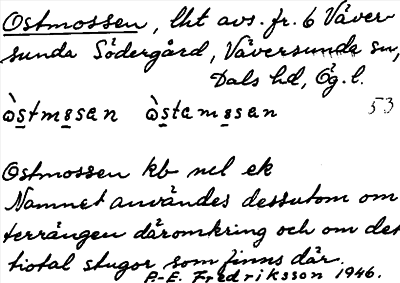 Ostmossen, lht avs. fr. 6 Väver-
sunda Södergård, Väversunda sn,
Dals hd, Ög. l.
òstmosan òstamosan 53
Ostmossen kb nel ek
Namnet användes dessutom om
terrängen däromkring och om det
tiotal stugor som finns där.
P.-E. Fredriksson 1946.